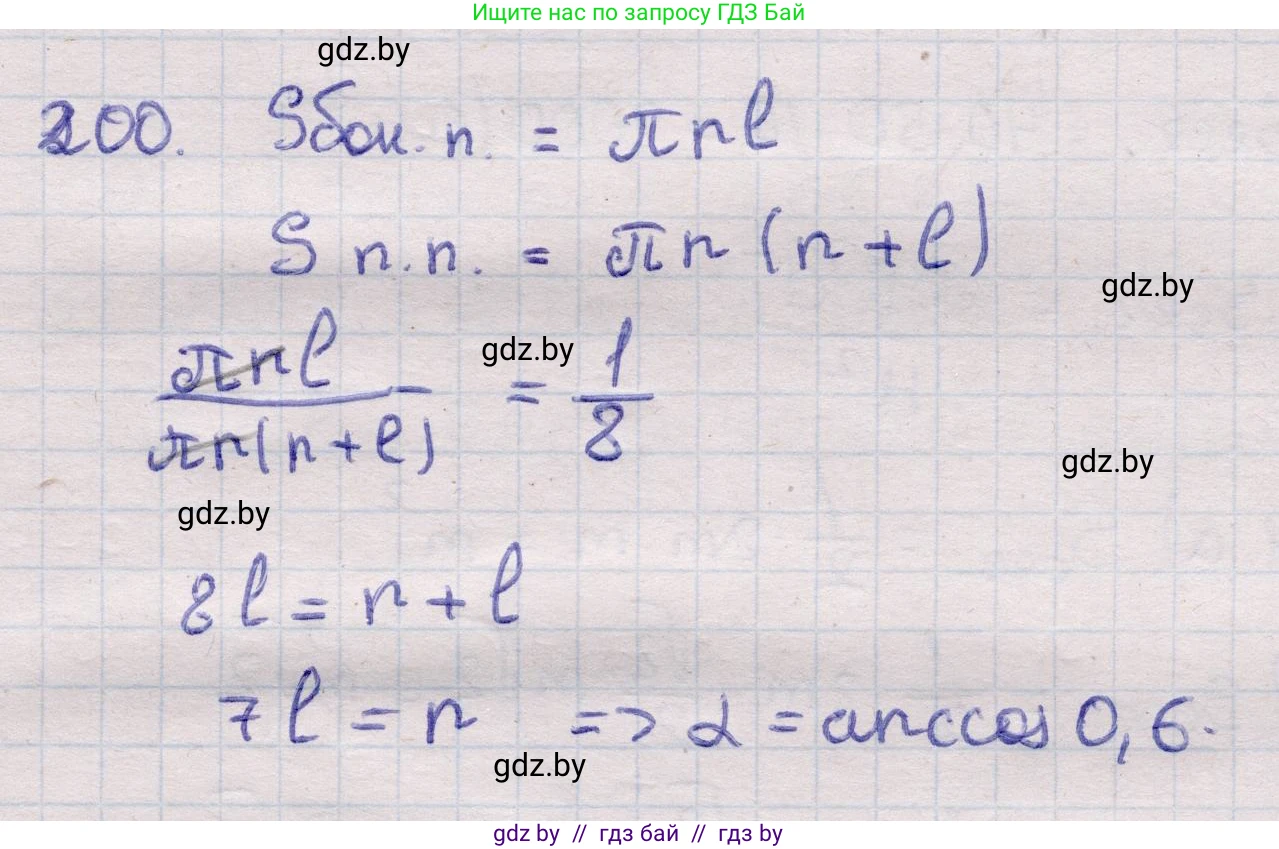 Ищите нас по запросу ГДЗ Бай
gdz.by
200. Sбок. п. = πrl
S п.п. = πr (r + l)
gdz.by
πrl / πr(r + l) = 1/8
gdz.by
gdz.by
gdz.by
8l = r + l
7l = r => α = arccos 0,6.
gdz.by
gdz by // гдз бай // гдз by